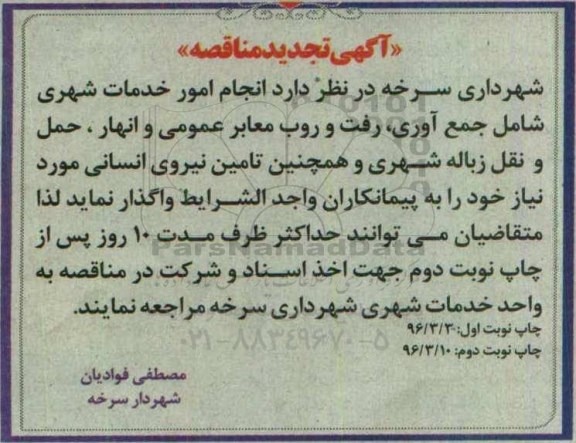 «آگهی تجدید مناقصه»
شهرداری سرخه در نظر دارد انجام امور خدمات شهری
شامل جمع آوری، رفت و روب معابر عمومی و انهار ، حمل
و نقل زباله شهری و همچنین تامین نیروی انسانی مورد
نیاز خود را به پیمانکاران واجد الشرایط واگذار نماید لذا
متقاضیان می توانند حداکثر ظرف مدت ۱۰ روز پس از
چاپ نوبت دوم جهت اخذ اسناد و شرکت در مناقصه به
واحد خدمات شهری شهرداری سرخه مراجعه نمایند.
چاپ نوبت اول: ۹۶/۳/۳
چاپ نوبت دوم: ۹۶/۳/۱۰
مصطفی فوادیان
شهردار سرخه
ParsNamadData
۰۲۱-۸۸۳۴۹۶۷۰-۵